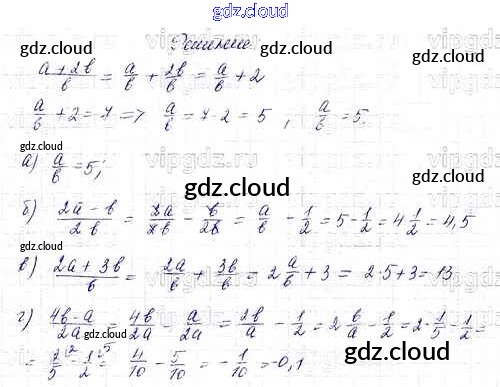 gdz.cloud
gdz.cloud Решение. gdz.cloud
(a+2b)/b = a/b + 2b/b = a/b + 2
a/b + 2 = 7 => a/b = 7-2 = 5 , a/b = 5.
gdz.cloud vipgdz.ru
а) a/b = 5;
gdz.cloud
б) (2a-b)/2b = 2a/2b - b/2b = a/b - 1/2 = 5 - 1/2 = 4 1/2 = 4,5
gdz.cloud gdz.cloud
в) (2a+3b)/b = 2a/b + 3b/b = 2 a/b + 3 = 2·5+3 = 13
г) (4b-a)/2a = 4b/2a - a/2a = 2b/a - 1/2 = 2 b/a - 1/2 = 2·1/5 - 1/2 =
gdz.cloud
= 2/5 - 1/2 = 4/10 - 5/10 = -1/10 = -0,1
gdz.cloud